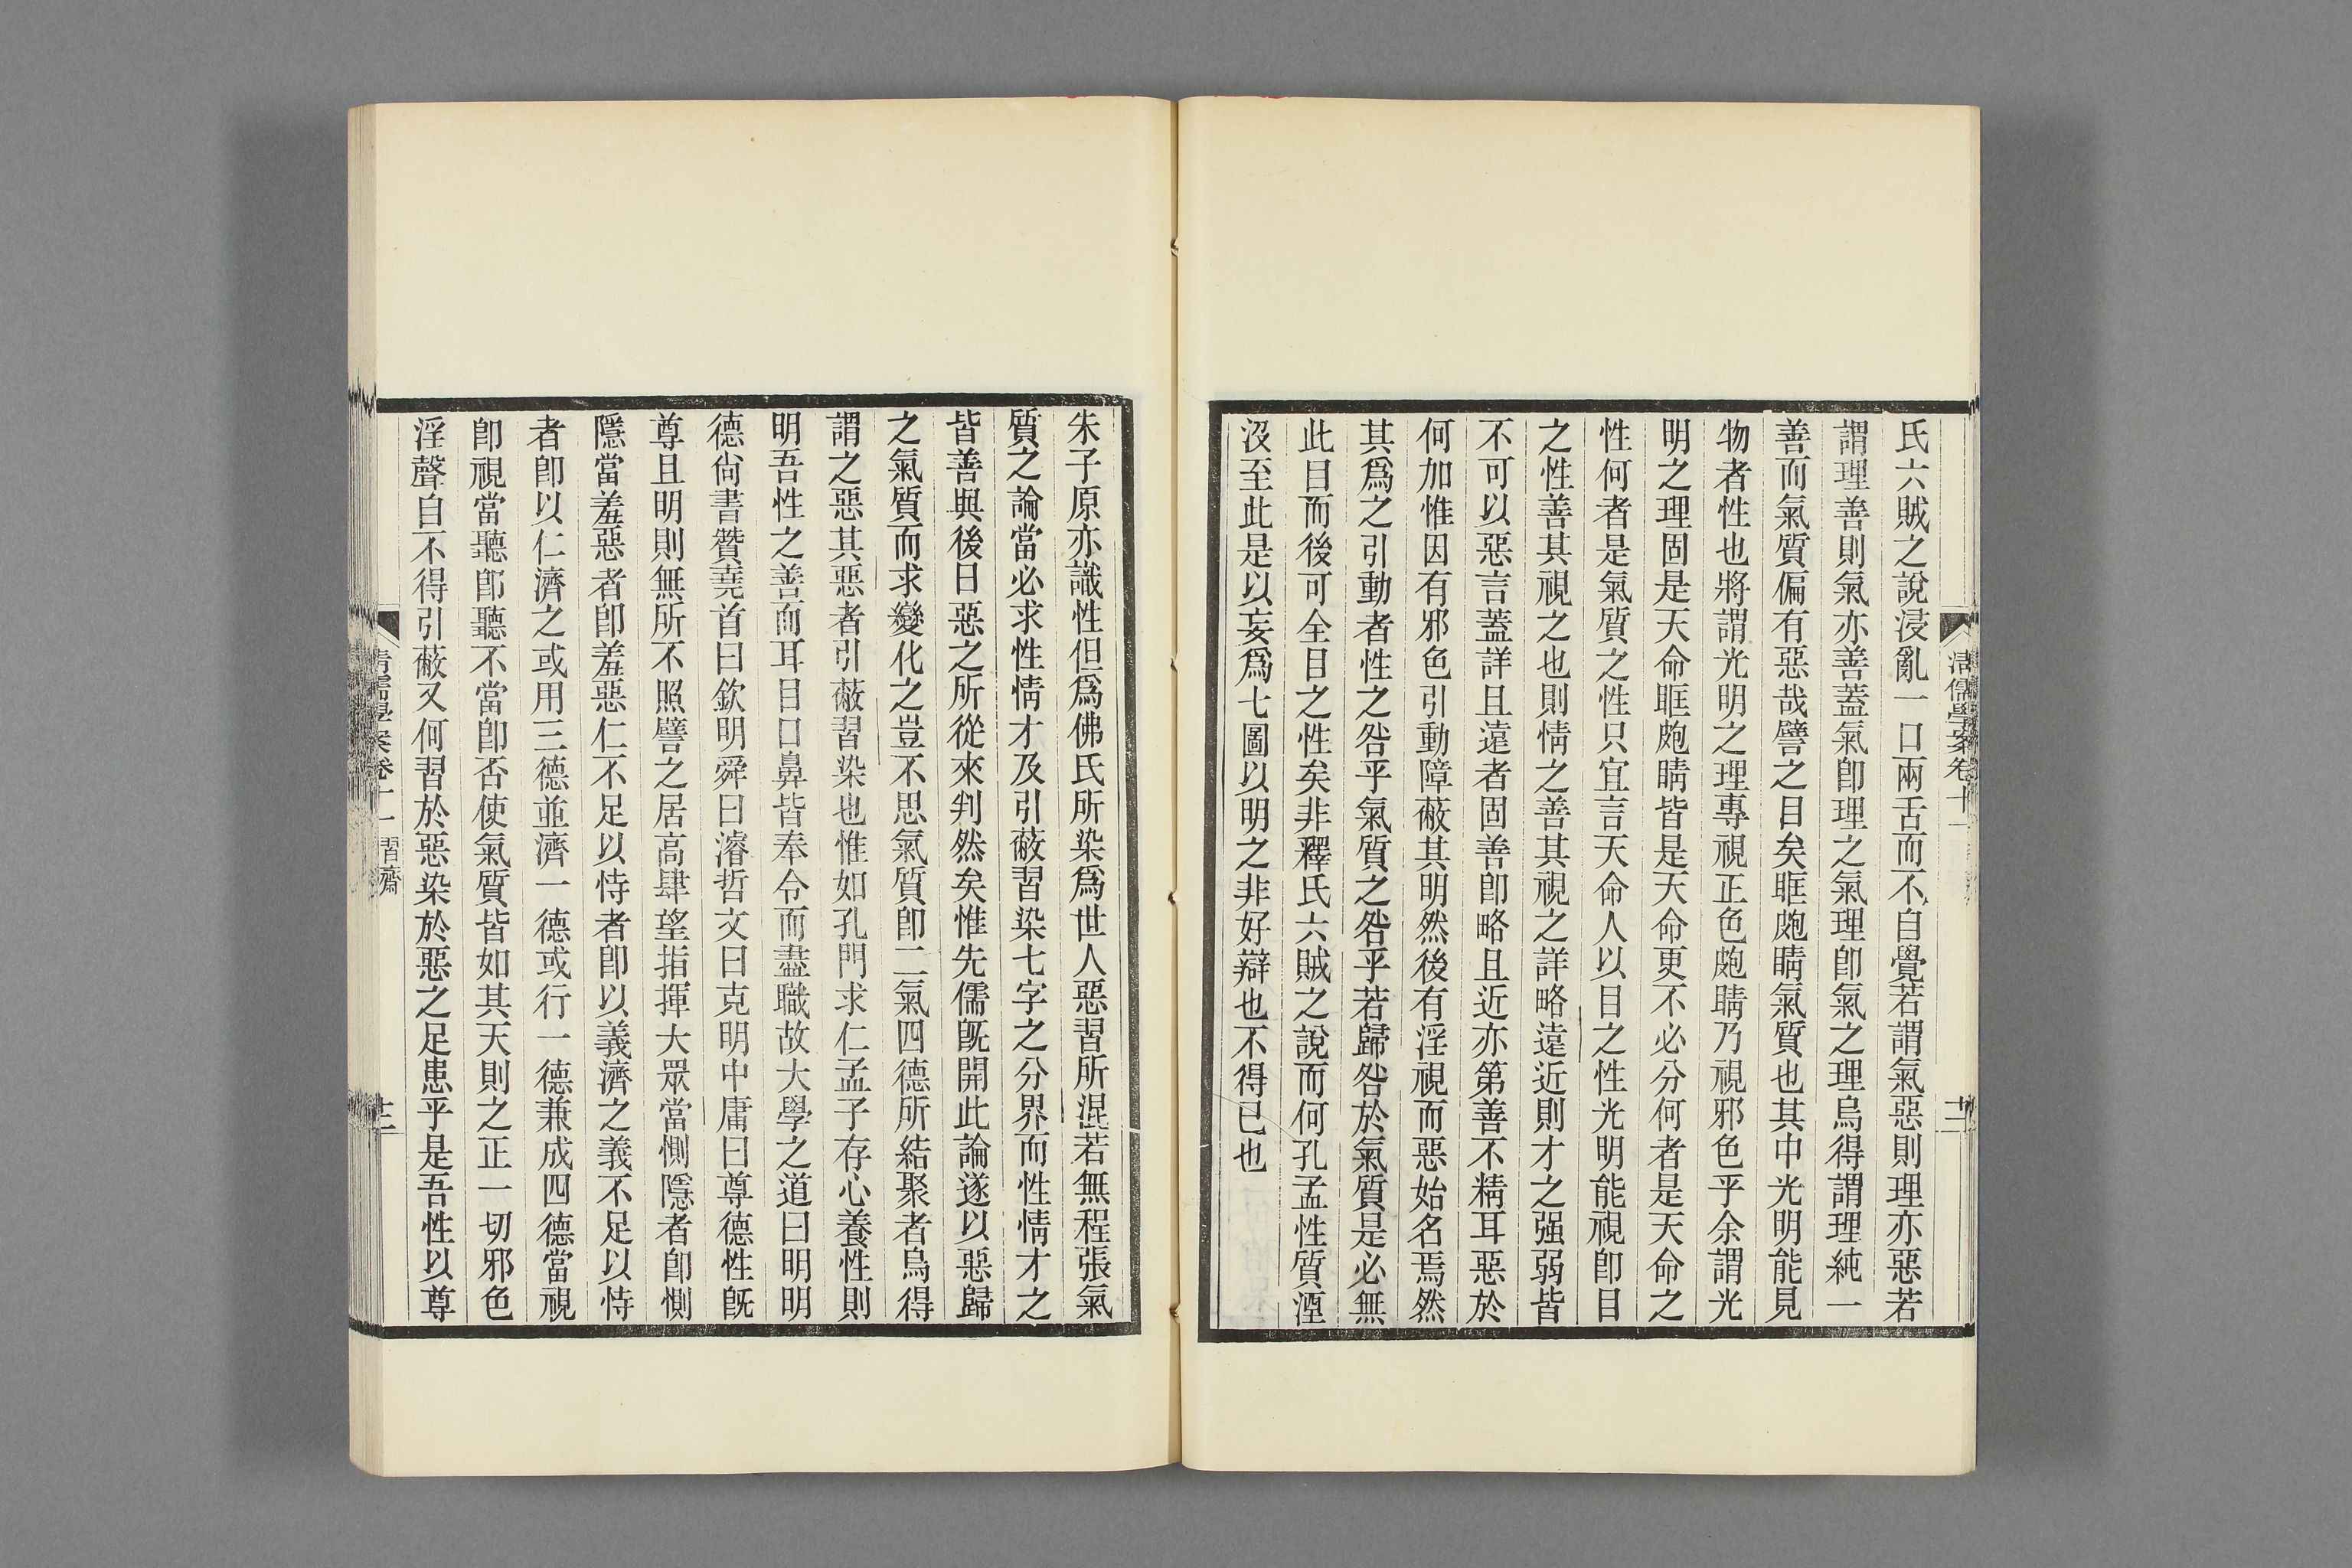 清儒學案卷十一
氏六賊之說浸亂一口兩舌而不自覺若謂氣惡則理亦惡若
謂理善則氣亦善蓋氣卽理之氣理卽氣之理烏得謂理純一
善而氣質偏有惡哉譬之目矣眶皰睛氣質也其中光明能見
物者性也將謂光明之理專視正色皰睛乃視邪色乎余謂光
明之理固是天命眶皰睛皆是天命更不必分何者是天命之
性何者是氣質之性只宜言天命人以目之性光明能視卽目
之性善其視之也則情之善其視之詳略遠近則才之强弱皆
不可以惡言蓋詳且遠者固善卽略且近亦第善不精耳惡於
何加惟因有邪色引動障蔽其明然後有淫視而惡始名焉然
其爲之引動者性之咎乎氣質之咎乎若歸咎於氣質是必無
此目而後可全目之性矣非釋氏六賊之說而何孔孟性質湮
沒至此是以妄爲七圖以明之非好辯也不得已也
朱子原亦識性但爲佛氏所染爲世人惡習所混若無程張氣
質之論當必求性情才及引蔽習染七字之分界而性情才之
皆善與後日惡之所從來判然矣惟先儒旣開此論遂以惡歸
之氣質而求變化之豈不思氣質卽二氣四德所結聚者烏得
謂之惡其惡者引蔽習染也惟如孔門求仁孟子存心養性則
明吾性之善而耳目口鼻皆奉令而盡職故大學之道曰明明
德尙書贊堯首曰欽明舜曰濬哲文曰克明中庸曰尊德性旣
尊且明則無所不照譬之居高肆望指揮大眾當惻隱者卽惻
隱當羞惡者卽羞惡仁不足以恃者卽以義濟之義不足以恃
者卽以仁濟之或用三德並濟一德或行一德兼成四德當視
卽視當聽卽聽不當卽否使氣質皆如其天則之正一切邪色
淫聲自不得引蔽又何習於惡染於惡之足患乎是吾性以尊
清儒學案卷十一 習齋